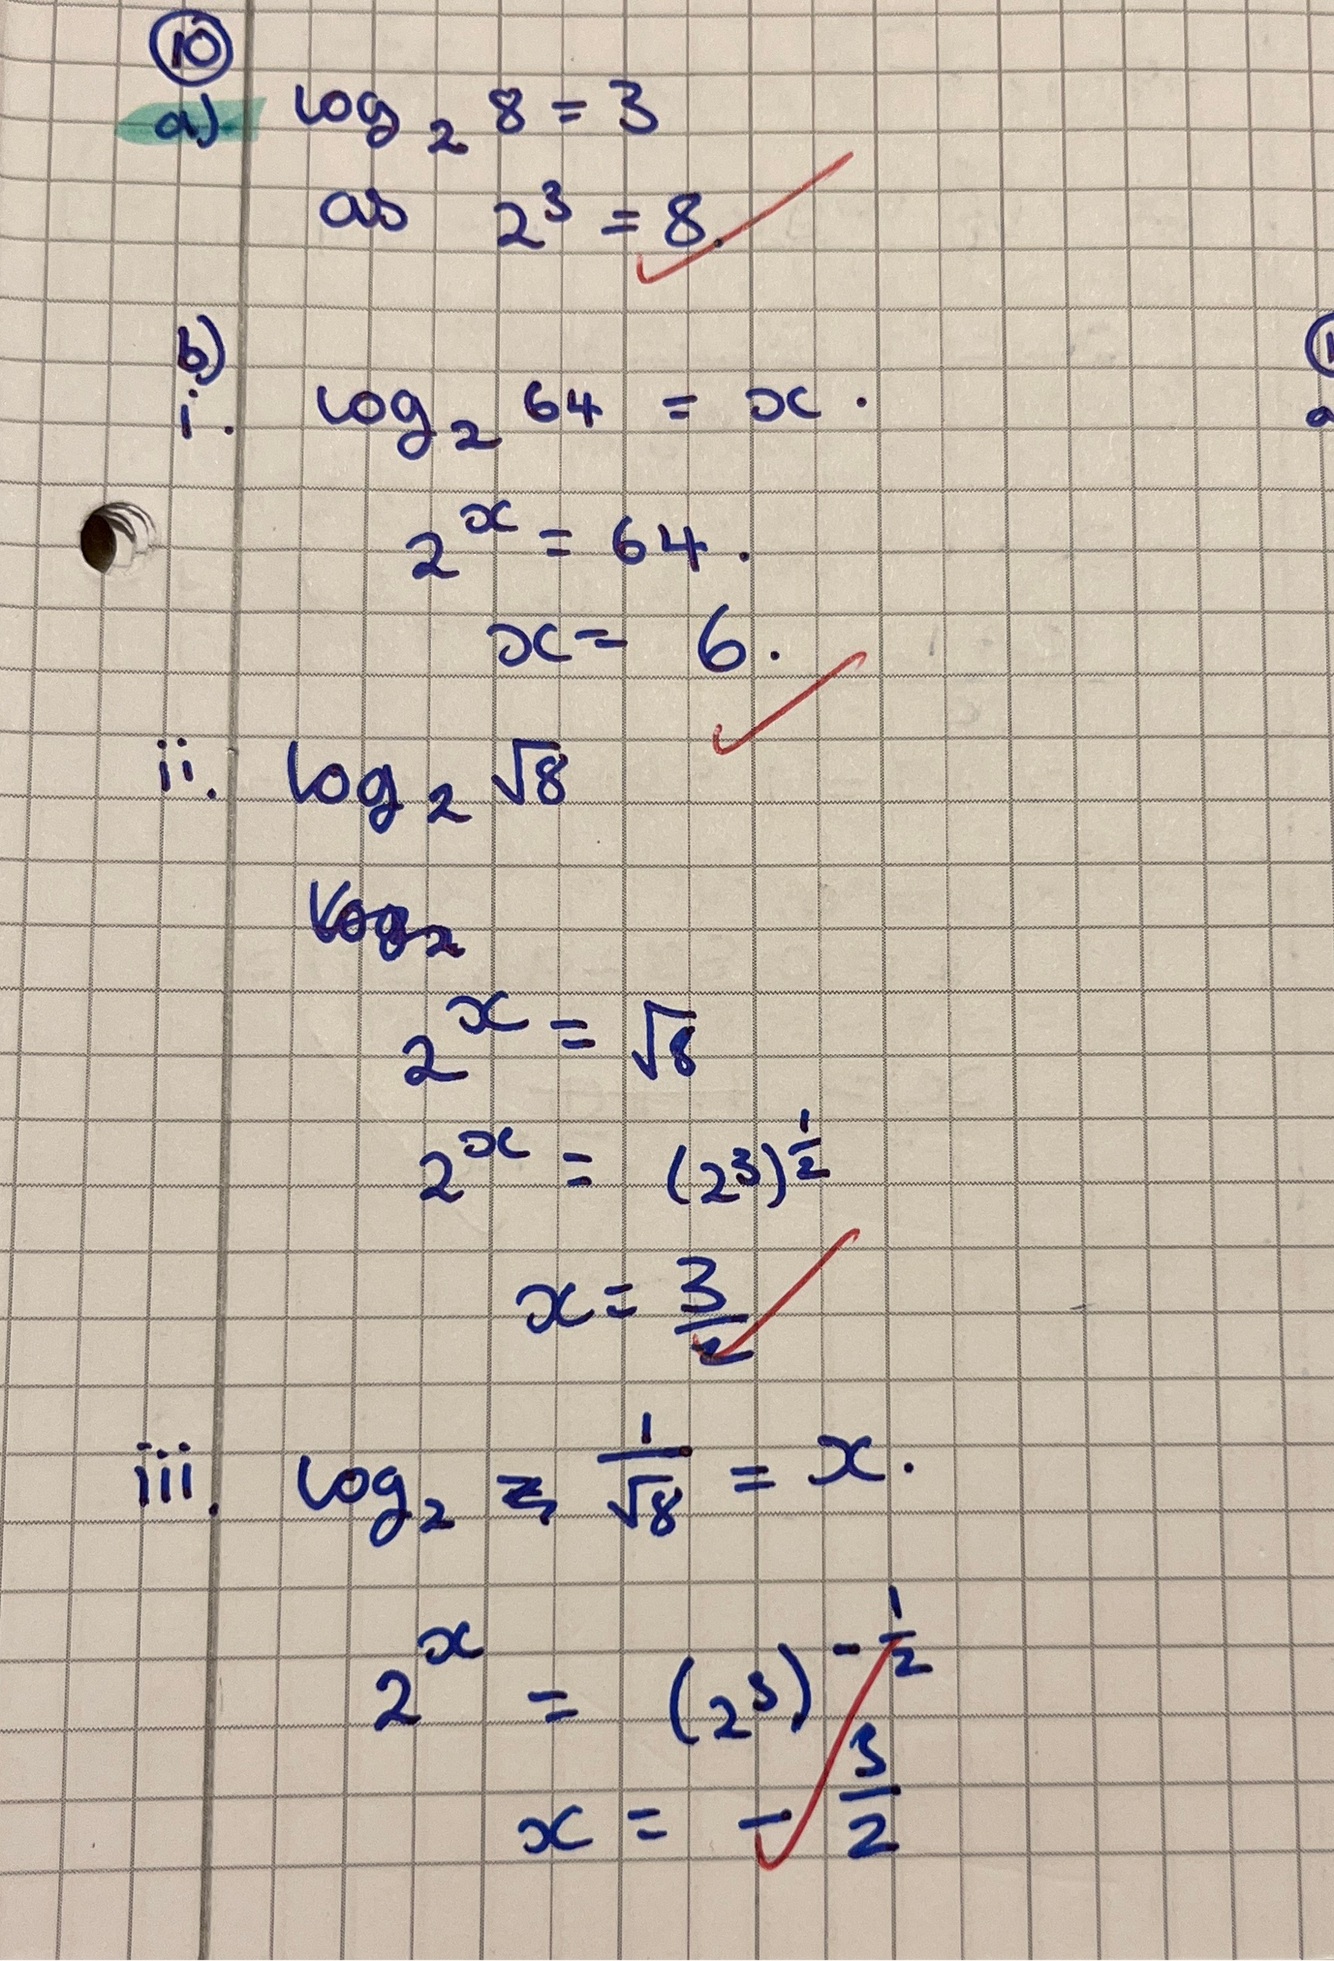 ⑩
a) log₂ 8 = 3
as 2³ = 8.
b)
i. log₂ 64 = x.
2ˣ = 64.
x = 6.
ii. log₂ √8
log₂
2ˣ = √8
2ˣ = (2³)^½
x = 3/2
iii. log₂ 1/√8 = x.
2ˣ = (2³)^-½
x = - 3/2